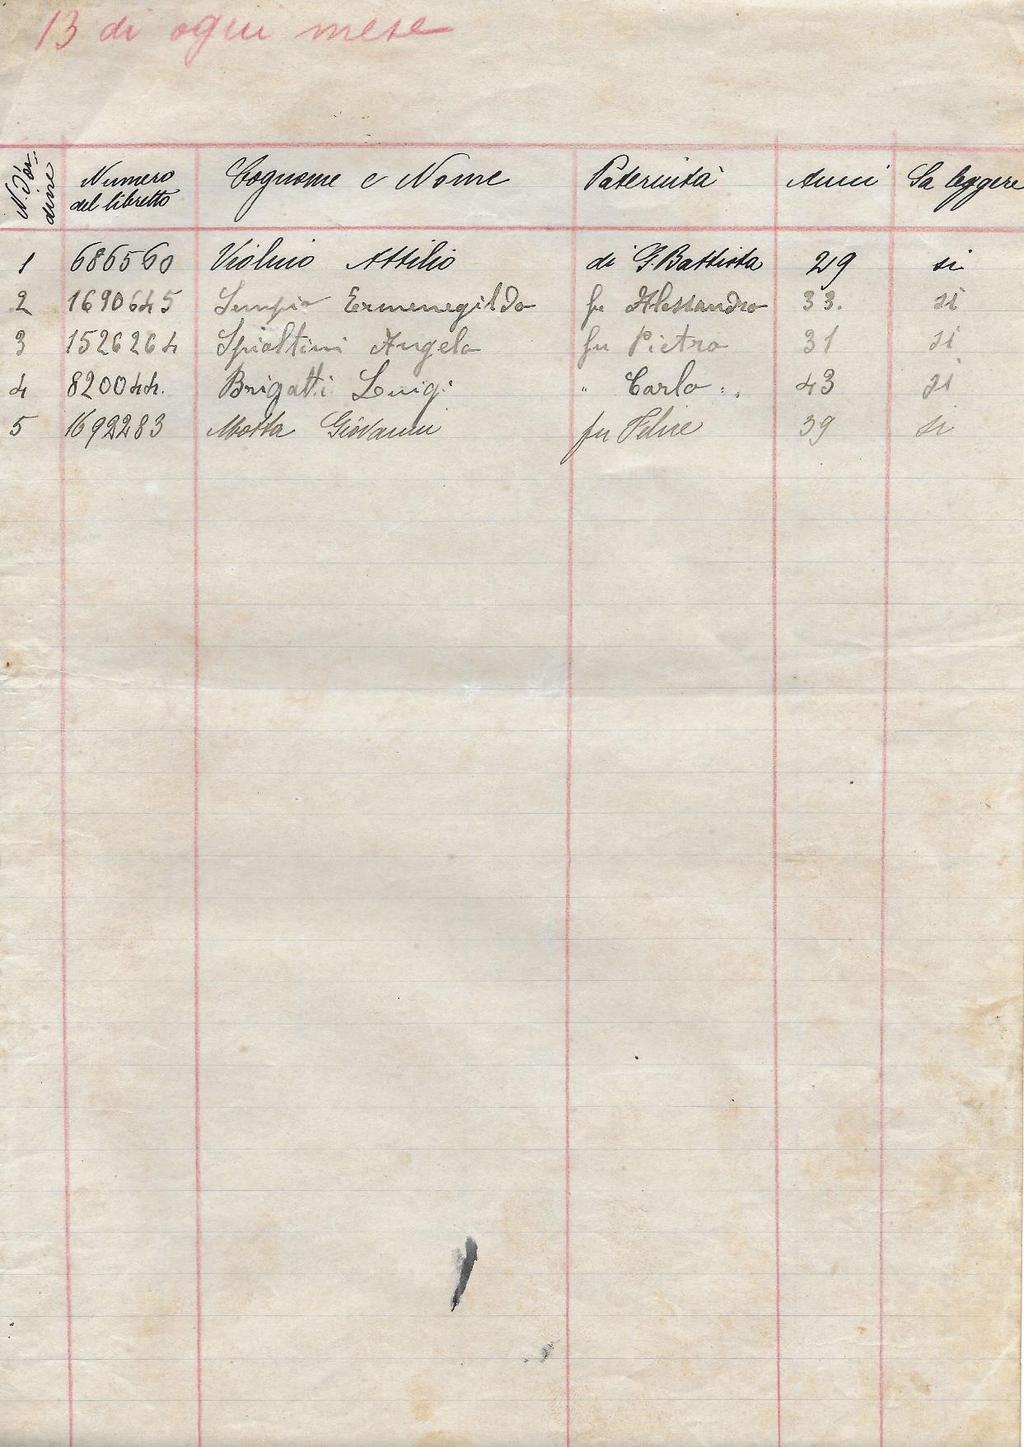 13 di ogni mese
N. d'or-
dine
Numero
del libretto
Cognome e Nome
Paternità
Anni
Sa leggere
1 686560 Violino Attilio di G. Battista 29 si
2 1690645 Sempio Ermenegildo fu Alessandro 33. si
3 1526264 Spialtini Angelo fu Pietro 31 si
4 820044. Brigatti Luigi " Carlo 43 si
5 1692283 Motta Giovanni fu Felice 39 si